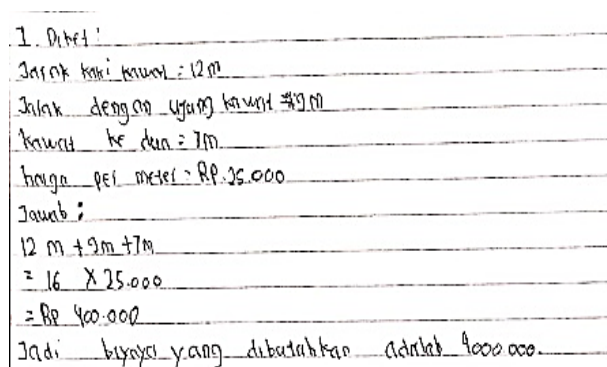 1. Diket:
Jarak kaki kawat = 12 m
Jalak dengan ujung kawat = 9 m
kawat ke dua = 7m
harga per meter = RP. 25.000
Jawab :
12 m + 9m + 7m
= 16 X 25.000
= Rp 400.000
Jadi byaya yang dibutuhkan adalah 4000.000.